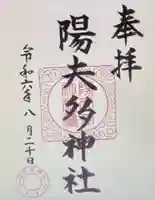 奉拝
陽夫多神社
令和六年八月二十日